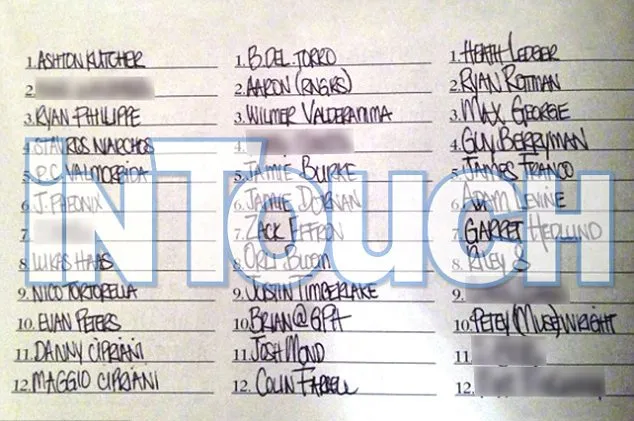 1. ASHTON KUTCHER
2.
3. RYAN PHILIPPE
4. STAVROS NIARCHOS
5. P.C. VALMORBIDA
6. J. PHEONIX
7.
8. LUKAS HAAS
9. NICO TORTORELLA
10. EVAN PETERS
11. DANNY CIPRIANI
12. MAGGIO CIPRIANI
1. B. DEL TORRO
2. AARON (RNGRS)
3. WILMER VALDERAMMA
4.
5. JAMIE BURKE
6. JAMIE DORNAN
7. ZACK EFFRON
8. ORLI BLOOM
9. JUSTIN TIMBERLAKE
10. BRIAN@GPH
11. JOSH MOND
12. COLIN FARRELL
1. HEATH LEDGER
2. RYAN ROTTMAN
3. MAX GEORGE
4. GUY BERRYMAN
5. JAMES FRANCO
6. ADAM LEVINE
7. GARRET HEDLUND
8. RILEY S
9.
10. PETEY (MUSE) WRIGHT
11.
12.
INTOUCH